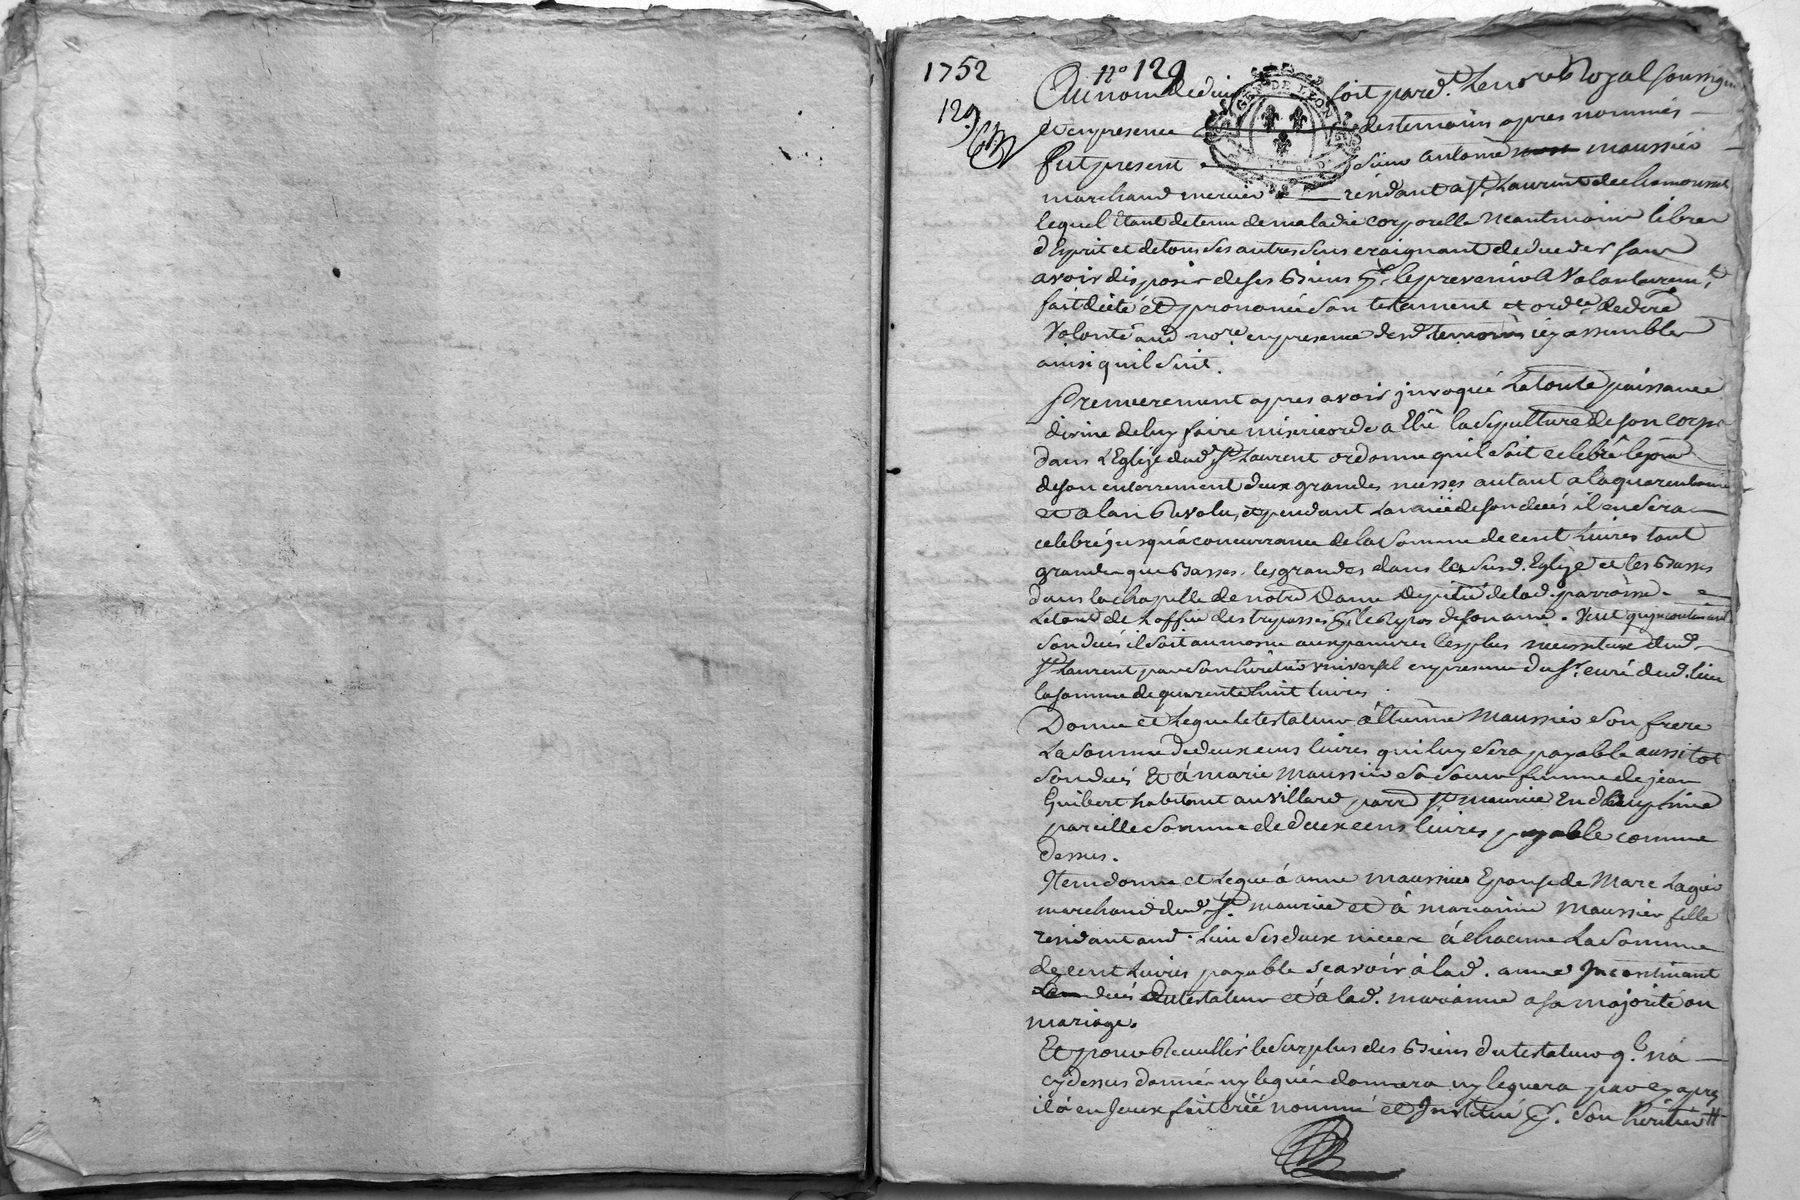 1752
n° 129
129
Au nom de dieu soit pard.t Le no.re Royal soussigné
et en presence des temoins apres nommés
fut present sieur antoine maussier
marchand mercier résidant a s.t Laurent de chamousset
lequel Etant detenu de maladie corporelle neantmoins libre
d'Esprit et de tous ses autres sens craignant de deceder sans
avoir disposé de ses Biens p.r le prevenir a Volontairem.t
fait dicté et prononcé son testament et ord.ce de dre
Volonté aud. no.re en presence desd. temoins icy assemblés
ainsi quil suit.
Premierement apres avoir invoqué La toute puissance
divine de luy faire misericorde a Elû la sepulture de son corps
dans L'Eglise dud. s.t Laurent ordonne quil soit celebré le jour
de son enterrement deux grandes messes autant a la quarantaine
et a lan Revolu, et pendant L'année de son decés il en sera
celebré jusqu'a concurrance de la somme de cent Livres tant
grandes que Basses, les grandes dans la susd. Eglise et les Basses
dans la chapelle de notre Dame de pitié de lad. parroisse.
Le tout de L'office des trepassés p.r le Repos de son ame. Veut qu'incontinant
son decés il soit aumoné aux pauvres les plus necessiteux dud.
s.t Laurent par son heritier universel en presence du s.r curé dud. lieu
la somme de quarente huit livres.
Donne et Legue le testateur à Etienne Maussier son frere
La somme de deux cens livres qui luy sera payable aussitot
son decés Et à marie Maussier sa soeur femme de jean
Guibert habitant au Villard parr. s.t maurice En dauphiné
pareille somme de deux cens livres payable comme
dessus.
Item donne et Legue à anne maussier Epouse de Marc Lagier
marchand dud. s.t maurice et à marianne Maussier fille
residant aud. lieu ses deux nieces à chacune La somme
de cent Livres payable scavoir à lad. anne Incontinant
le decés du testateur et à lad. marianne a sa majorité ou
mariage.
Et pour Recueillir le surplus des Biens du testateur q.l n'a
cy dessus donnés ny legués donnera ny leguera par cy apres
il à en Iceux fait créé nommé et Institué p.r son heritier